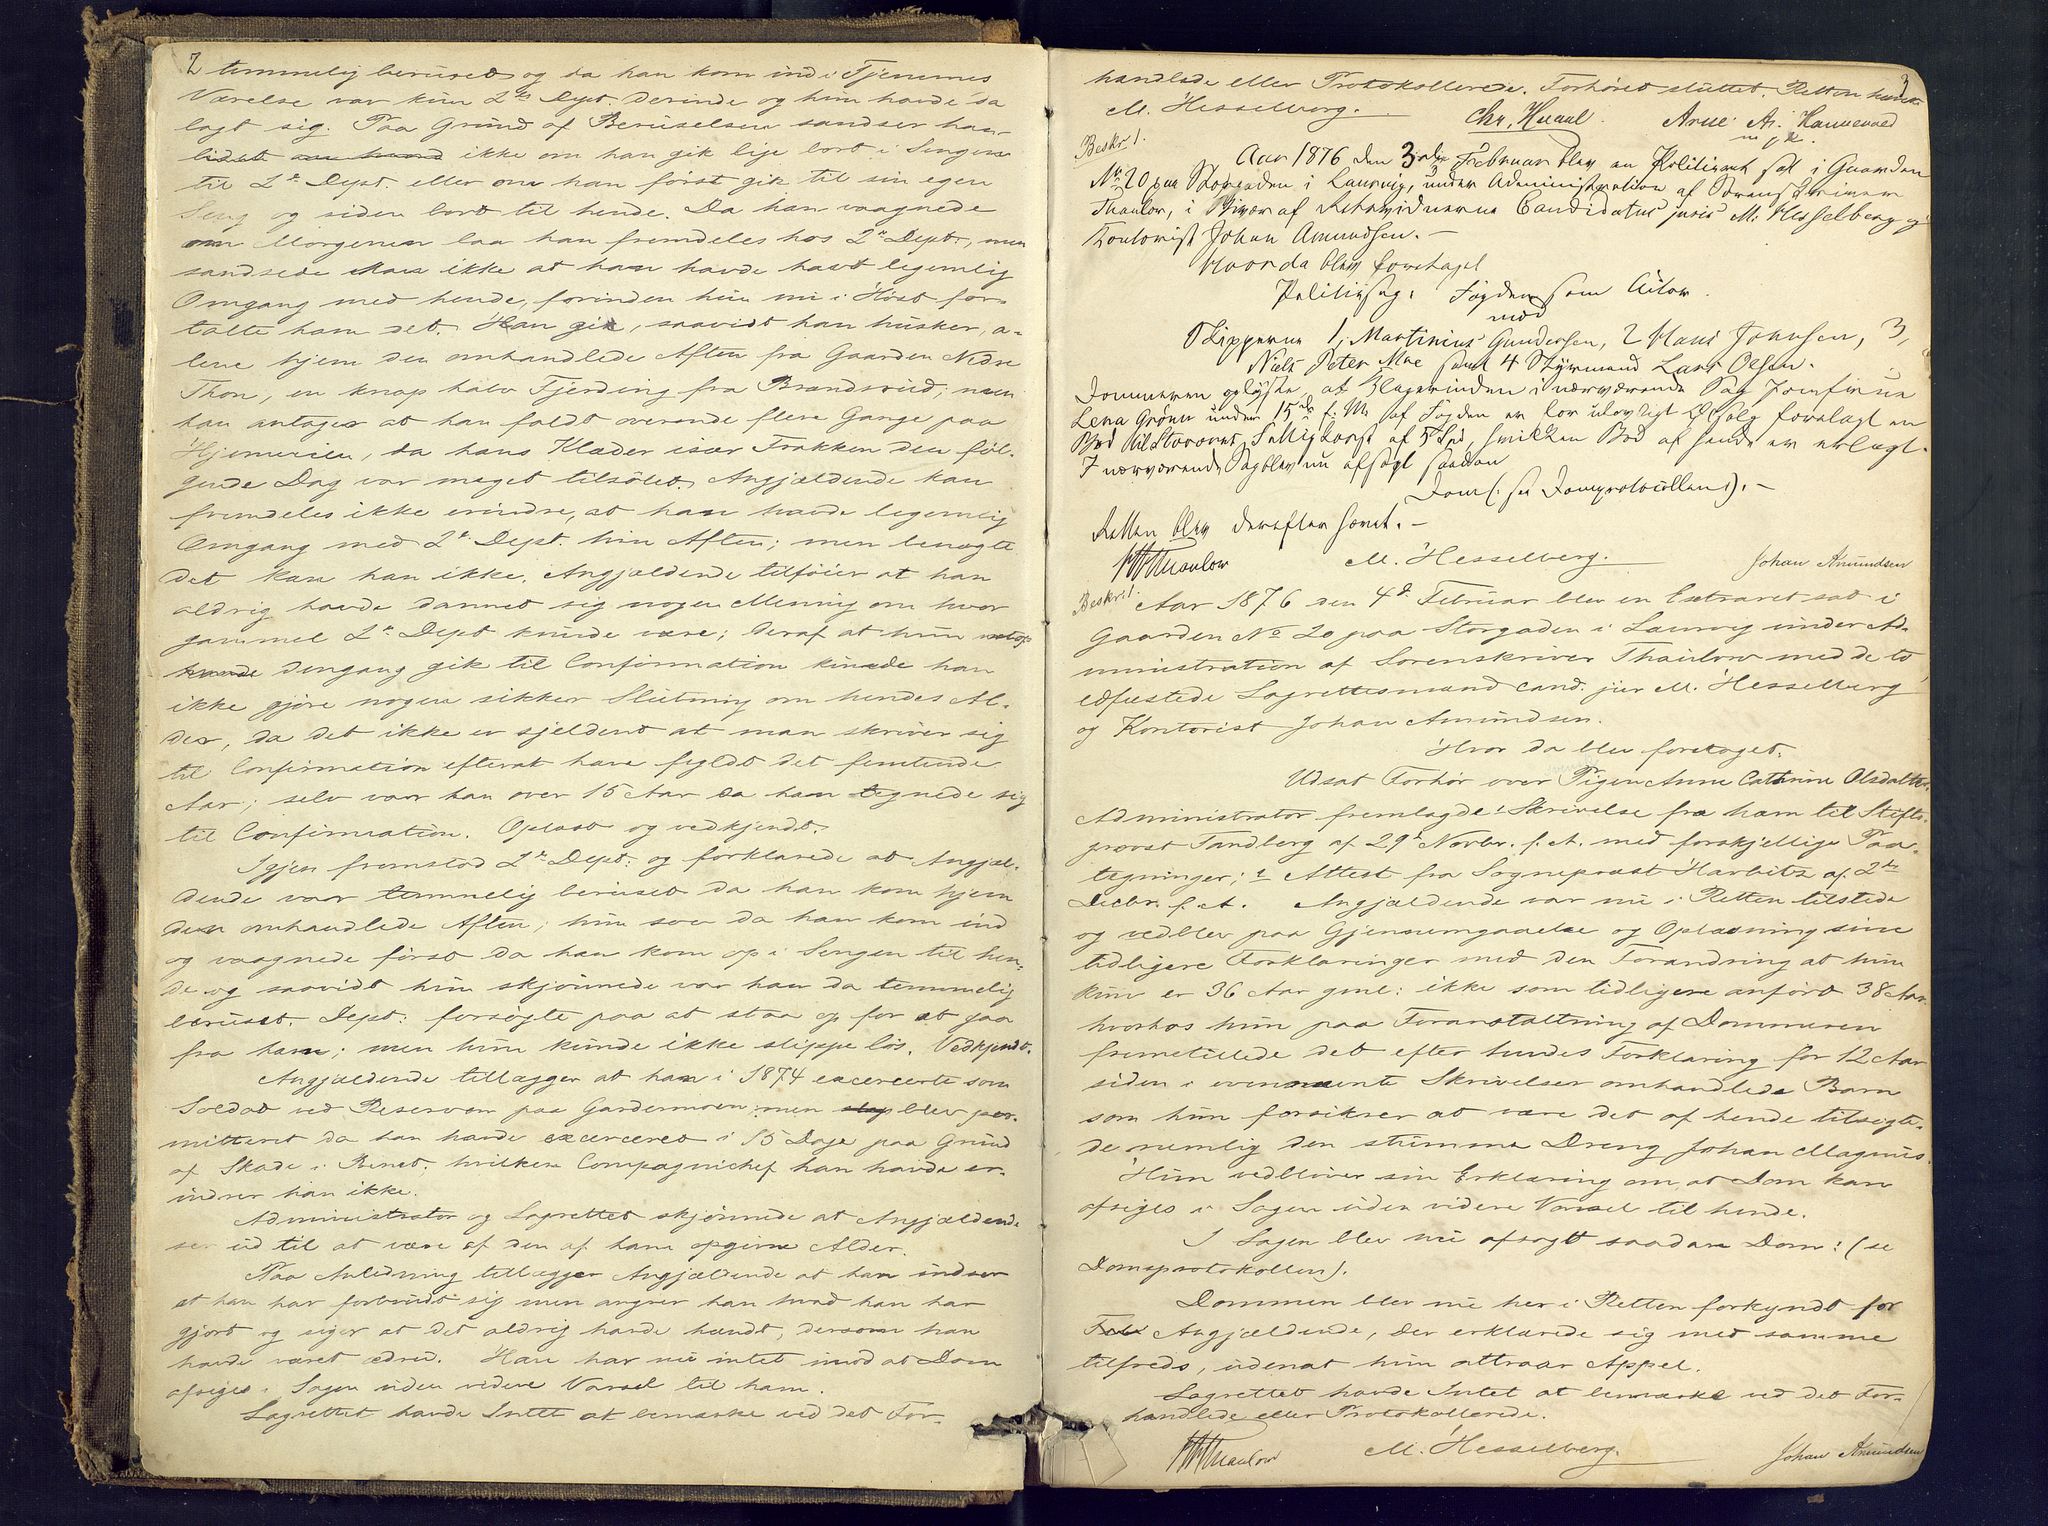 2
temmelig beruset og da han kom ind i Tjenernes
Værelse var kun 2den Dept. derinde og hun havde da
lagt sig. Paa Grund af Beruselsen sandser han
ikke om han gik lige bort i Sengen
til 2n Dept. eller om han først gik til sin egen
Seng og siden bort til hende. Da han vaagnede
om Morgenen laa han fremdeles hos 2n Dept., men
sandsede ikke at han havde havt legemlig
Omgang med hende, forinden hun nu i Høst for-
talte ham det. Han gik, saavidt han husker, a-
lene hjem den omhandlede Aften fra Gaarden Nedre
Thon, en knap halv Fjerding fra Brandsrud; men
han antager at han faldt overende flere Gange paa
Hjemveien, da hans Klæder især Frakken den føl-
gende Dag var meget tilsølet. Angjældende kan
fremdeles ikke erindre, at han havde legemlig
Omgang med 2n Dept. hin Aften; men benægte
det kan han ikke. Angjældende tilføier at han
aldrig havde dannet sig nogen Mening om hvor
gammel 2n Dept kunde være; deraf at hun netop
dengang gik til Confirmation kunde han
ikke gjøre nogen sikker Slutning om hendes Al-
der, da det ikke er sjeldent at man skriver sig
til Confirmation efterat have fyldt det femtende
Aar; selv var han over 15 Aar da han tegnede sig
til Confirmation. Oplæst og vedkjendt.
Igjen fremstod 2n Dept: og forklarede at Angjæl-
dende var temmelig beruset da han kom hjem
den omhandlede Aften; hun sov da han kom ind
og vaagnede først da han kom op i Sengen til hen-
de og saavidt hun skjønnede var han da temmelig
beruset. Dept: forsøgte paa at staa op for at gaa
fra ham; men hun kunde ikke slippe løs. Vedkjendt.
Angjældende tillægger at han i 1874 excercerte som
Soldat ved Reserven paa Gardermoen men blev per-
mitteret da han havde excerceret i 15 Dage paa Grund
af Skade i Benet; hvilken Compagnichef han havde er-
indrer han ikke.
Administrator og Lagrettet skjønnede at Angjældende
ser ud til at være af den af ham opgivne Alder.
Paa Anledning tillægger Angjældende at han indser
at han har forbrudt sig men angrer han hvad han har
gjort og siger at det aldrig havde hændt, dersom han
havde været ædru. Han har nu intet imod at Dom
afsiges i Sagen uden videre Varsel til ham.
Lagrettet havde Intet at bemærke ved det For-
3
handlede eller Protokollerede. Forhøret sluttet. Retten hævet
M. Hesselberg. Chr. Huaul. Arne As. Hannevold
Beskr 1.
Aar 1876 den 3die Februar blev en Politiret sat i Gaarden
No 20 paa Storgaden i Laurvig, under Administration af Sorenskriver
Thaulow, i Overvær af Retsvidnerne Candidatus juris M. Hesselberg og
Kontorist Johan Amundsen. –
Hvorda blev foretaget
Politisag: Fogden som Aktor
mod
Skipperne 1, Martinius Gundersen, 2 Hans Johnsen, 3,
Niels Peter Moe samt 4 Styrmand Lars Olsen.
Dommeren oplyste at Klagerinden i nærværende Sag Jomfruen
Lena Grønn under 15de f. M. af Fogden er for ulovligt Ølsalg forelagt en
Bod til Stavern Fattigkasse af 5 Spd, hvilken Bod af hende er erlagt.
I nærværende Sag blev nu afsagt saadan
Dom (: se Domprotocollen :). –
Retten blev derefter hævet. –
Thaulow M. Hesselberg. Johan Amundsen
Beskr: 1.
Aar 1876 den 4de Februar blev en Extraret sat i
Gaarden No 20 paa Storgaden i Laurvig under Ad-
ministration af Sorenskriver Thaulow med de to
edfæstede Lagrettesmænd cand. jur M. Hesselberg
og Kontorist Johan Amundsen.
Hvor da blev foretaget:
Udsat Forhør over Pigen Anne Cathrine Olsdatter.
Administrator fremlagde 1 Skrivelse fra ham til Stifts-
provst Tandberg af 29de Novbr. f. A. med forskjellige Paa-
tegninger; 1 Attest fra Sognepræst Harbitz af 2den
Decbr. f. A. Angjældende var nu i Retten tilstede
og vedblev paa Gjennemgaaelse og Oplæsning sine
tidligere Forklaringer med den Forandring at hun
kun er 36 Aar gml: ikke som tidligere anført 38 Aar.
hvorhos hun paa Foranstaltning af Dommeren
fremstillede det efter hendes Forklaring for 12 Aar
siden i ovennævnte Skrivelser omhandlede Barn
som hun forsikrer at være det af hende tilsigte-
de nemlig den stumme Dreng Johan Magnus.
Hun vedbliver sin Erklæring om, at Dom kan
afsiges i Sagen uden videre Varsel til hende.
I Sagen blev nu afsagt saadan Dom: (se
Domsprotokollen).
Dommen blev nu her i Retten forkyndt for
Angjældende, der erklærede sig med samme
tilfreds, idenat hun attraar Appel.
Lagrettet havde Intet at bemærke ved det For-
handlede eller Protokollerede.
Thaulow M. Hesselberg. Johan Amundsen